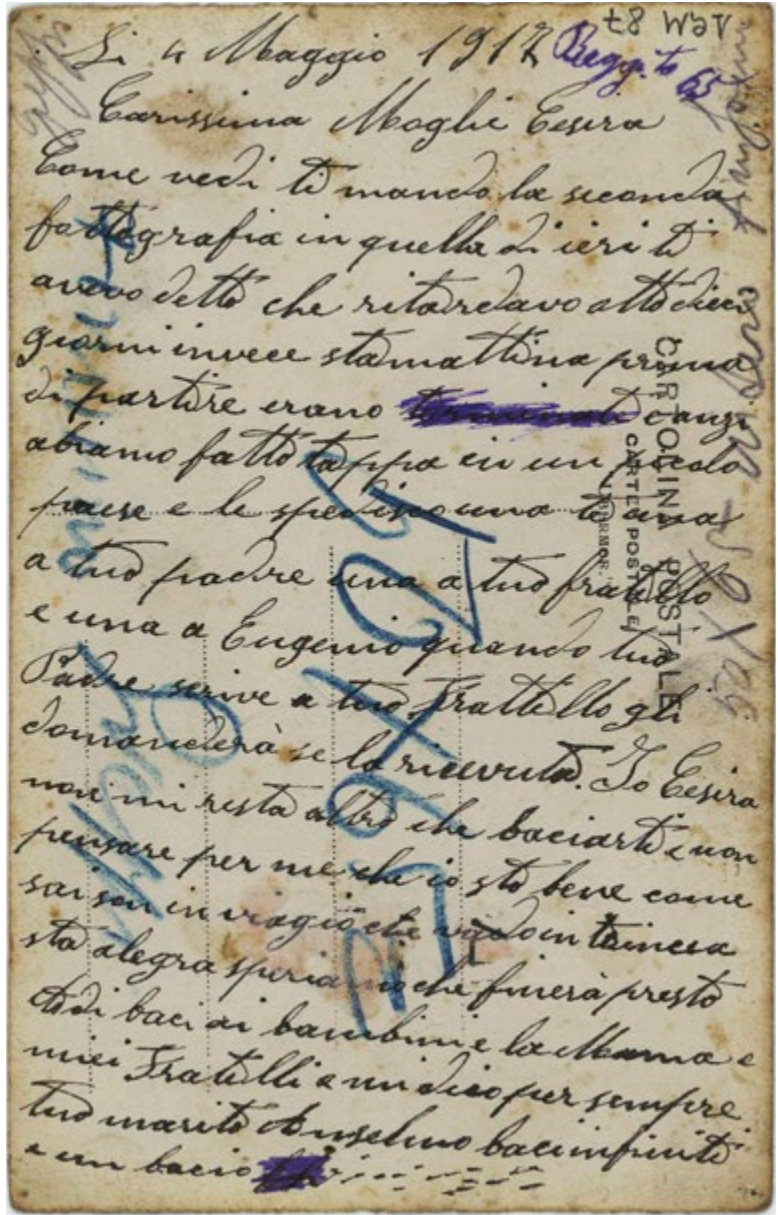 AEM 87
Li 4 Maggio 1917 Regg.to 65
Carissima Moglie Cesira
Come vedi ti mando la seconda
fottografia in quella di ieri ti
avevo detto che ritardavo otto dieci
giorni invece stamattina prima
di partire erano terminate e anzi
abiamo fatto tappa in un picolo
paese e le spedisco una te una
a tuo padre una a tuo fratello
e una a Eugenio quando tuo
Padre scrive a tuo Frattello gli
domanderà se la ricevuta. Io Cesira
non mi resta altro che baciarti e non
pensare per me che io stò bene come
sai son in viagio che vado in trincea
stà alegra speriamo che finerà presto
dai baci ai bambini e la Mama e
miei Fratelli e mi dico per sempre
tuo marito Anselmo baci infiniti
e un bacio
CARTOLINA POSTALE
CARTE POSTALE